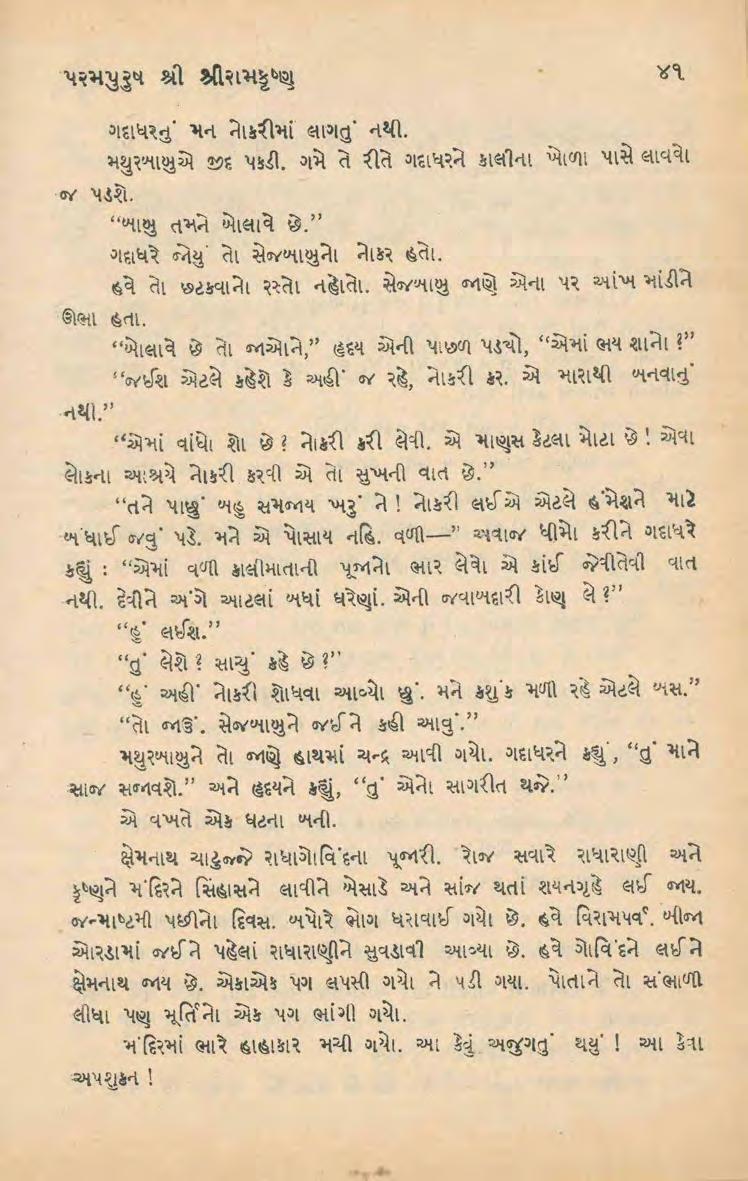 પરમપુરુષ શ્રી શ્રીરામકૃષ્ણ ૪૧
ગદાધરનું મન નોકરીમાં લાગતું નથી.
મથુરબાબુએ જીદ પકડી. ગમે તે રીતે ગદાધરને કાલીના ખોળા પાસે લાવવો
જ પડશે.
“બાબુ તમને બોલાવે છે.”
ગદાધરે જોયું તો સેજબાબુનો નોકર હતો.
હવે તો છટકવાનો રસ્તો નહોતો. સેજબાબુ જાણે એના પર આંખ માંડીને
ઊભા હતા.
“બોલાવે છે તો જાઓને,” હૃદય એની પાછળ પડ્યો, “એમાં ભય શાનો ?”
“જઈશ એટલે કહેશે કે અહીં જ રહે, નોકરી કર. એ મારાથી બનવાનું
નથી.”
“એમાં વાંધો શો છે ? નોકરી કરી લેવી. એ માણસ કેટલા મોટા છે ! એવા
લોકના આશ્રયે નોકરી કરવી એ તો સુખની વાત છે.”
“તને પાછું બહુ સમજાય ખરું ને ! નોકરી લઈએ એટલે હંમેશને માટે
બંધાઈ જવું પડે. મને એ પોસાય નહિ. વળી—” અવાજ ધીમો કરીને ગદાધરે
કહ્યું : “એમાં વળી કાલીમાતાની પૂજાનો ભાર લેવો એ કાંઈ જેવીતેવી વાત
નથી. દેવીને અંગે આટલાં બધાં ઘરેણાં. એની જવાબદારી કોણ લે ?”
“હું લઈશ.”
“તું લેશે ? સાચું કહે છે ?”
“હું અહીં નોકરી શોધવા આવ્યો છું. મને કશુંક મળી રહે એટલે બસ.”
“તો જાઉં. સેજબાબુને જઈને કહી આવું.”
મથુરબાબુને તો જાણે હાથમાં ચન્દ્ર આવી ગયો. ગદાધરને કહ્યું, “તું માને
સાજ સજાવશે.” અને હૃદયને કહ્યું, “તું એનો સાગરીત થજે.”
એ વખતે એક ઘટના બની.
ક્ષેમનાથ ચાટુજ્જે રાધાગોવિંદના પૂજારી. રોજ સવારે રાધારાણી અને
કૃષ્ણને મંદિરને સિંહાસને લાવીને બેસાડે અને સાંજ થતાં શયનગૃહે લઈ જાય.
જન્માષ્ટમી પછીનો દિવસ. બપોરે ભોગ ધરાવાઈ ગયો છે. હવે વિરામપર્વ. બીજા
ઓરડામાં જઈને પહેલાં રાધારાણીને સુવડાવી આવ્યા છે. હવે ગોવિંદને લઈને
ક્ષેમનાથ જાય છે. એકાએક પગ લપસી ગયો ને પડી ગયા. પોતાને તો સંભાળી
લીધા પણ મૂર્તિનો એક પગ ભાંગી ગયો.
મંદિરમાં ભારે હાહાકાર મચી ગયો. આ કેવું અજુગતું થયું ! આ કેવા
અપશુકન !